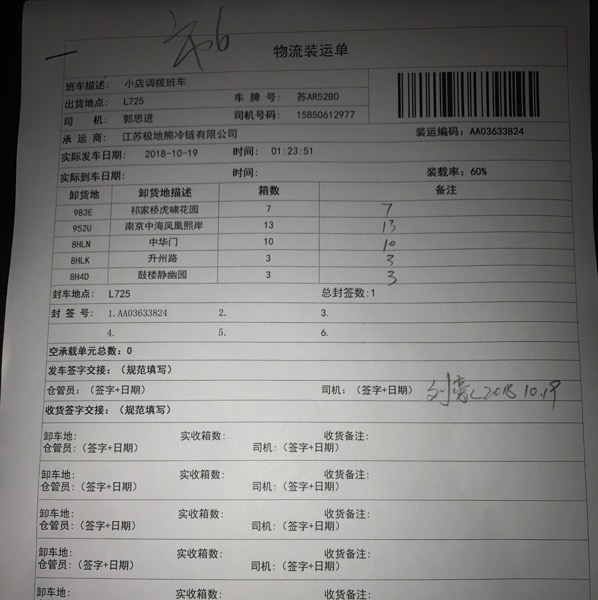 物流装运单
班车描述: 小店调拨班车
出货地点: L725 车 牌 号: 苏AR52B0
司 机: 郭思进 司机号码: 15850612977
承 运 商: 江苏极地熊冷链有限公司 装运编码: AA03633824
实际发车日期: 2018-10-19 时间: 01:23:51
实际到车日期: 时间: 装载率: 60%
卸货地 卸货地描述 箱数 备注
983E 祁家桥虎啸花园 7 7
952U 南京中海凤凰熙岸 13 13
8HLN 中华门 10 10
8HLK 升州路 3 3
8H4D 鼓楼静幽园 3 3
封车地点: L725 总封签数:1
封 签 号: 1.AA03633824 2. 3.
4. 5. 6.
空承载单元总数: 0
发车签字交接: (规范填写)
仓管员: (签字+日期) 司机: (签字+日期) 2018 10.19
收货签字交接: (规范填写)
卸车地: 实收箱数: 收货备注:
仓管员: (签字+日期) 司机: (签字+日期)
卸车地: 实收箱数: 收货备注:
仓管员: (签字+日期) 司机: (签字+日期)
卸车地: 实收箱数: 收货备注:
仓管员: (签字+日期) 司机: (签字+日期)
卸车地: 实收箱数: 收货备注:
仓管员: (签字+日期) 司机: (签字+日期)
卸车地: 实收箱数: 收货备注: